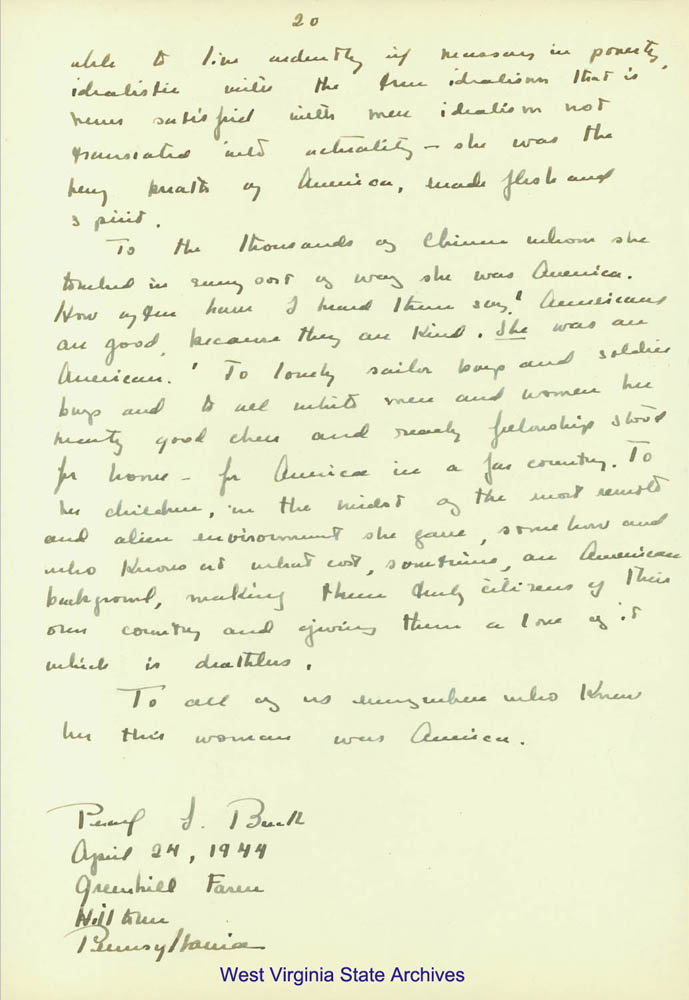 20
able to live ardently if necessary in poverty,
idealistic with the true idealism that is
never satisfied with mere idealism not
translated into actuality – she was the
very breath of America, made flesh and
spirit.
To the thousands of Chinese whom she
touched in every sort of way she was America.
How often have I heard them say, "Americans
are good, because they are kind. She was an
American." To lonely sailor boys and soldier
boys and to all white men and women her
hearty good cheer and ready fellowship stood
for home – for America in a far country. To
her children, in the midst of the most remote
and alien environment she gave, somehow and
who knows at what cost, sometimes, an American
background, making them truly citizens of their
own country and giving them a love of it
which is deathless.
To all of us everywhere who knew
her this woman was America.
Pearl S. Buck
April 24, 1944
Greenhill Farm
Hilltown
Pennsylvania
West Virginia State Archives